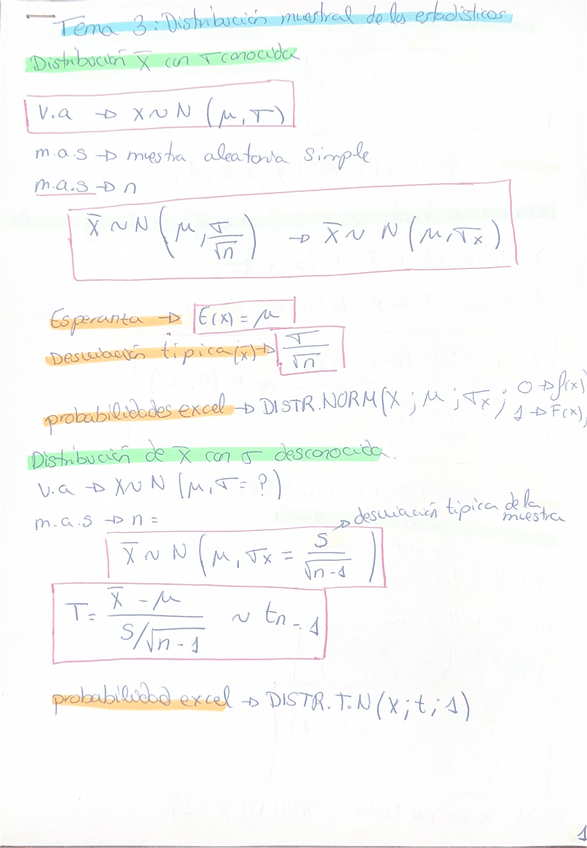 Tema 3: Distribución muestral de los estadísticos
Distribución X̄ con σ conocida
v.a → X ~ N (μ, σ)
m.a.s → muestra aleatoria simple
m.a.s → n
X̄ ~ N (μ, σ/√n) → X̄ ~ N (μ, σx)
Esperanza → E(x) = μ
Desviación típica (x̄) → σ/√n
probabilidades excel → DISTR.NORM (X ; μ ; σx ; 0 → f(x)
1 → F(x)
Distribución de X̄ con σ desconocida.
v.a → X ~ N (μ, σ = ?)
m.a.s → n =
→ desviación típica de la muestra
X̄ ~ N (μ, σx = S/√n-1)
T = X̄ - μ / S/√n-1 ~ tn-1
probabilidad excel → DISTR.T.N (x ; t ; 1)
1